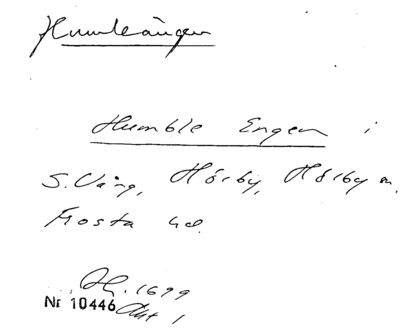 Humleängen
Humble Engen i
S. Vång, Hörby, Hörby sn.
Frosta hd.
LH. 1699
Nr 10446 Akt 1